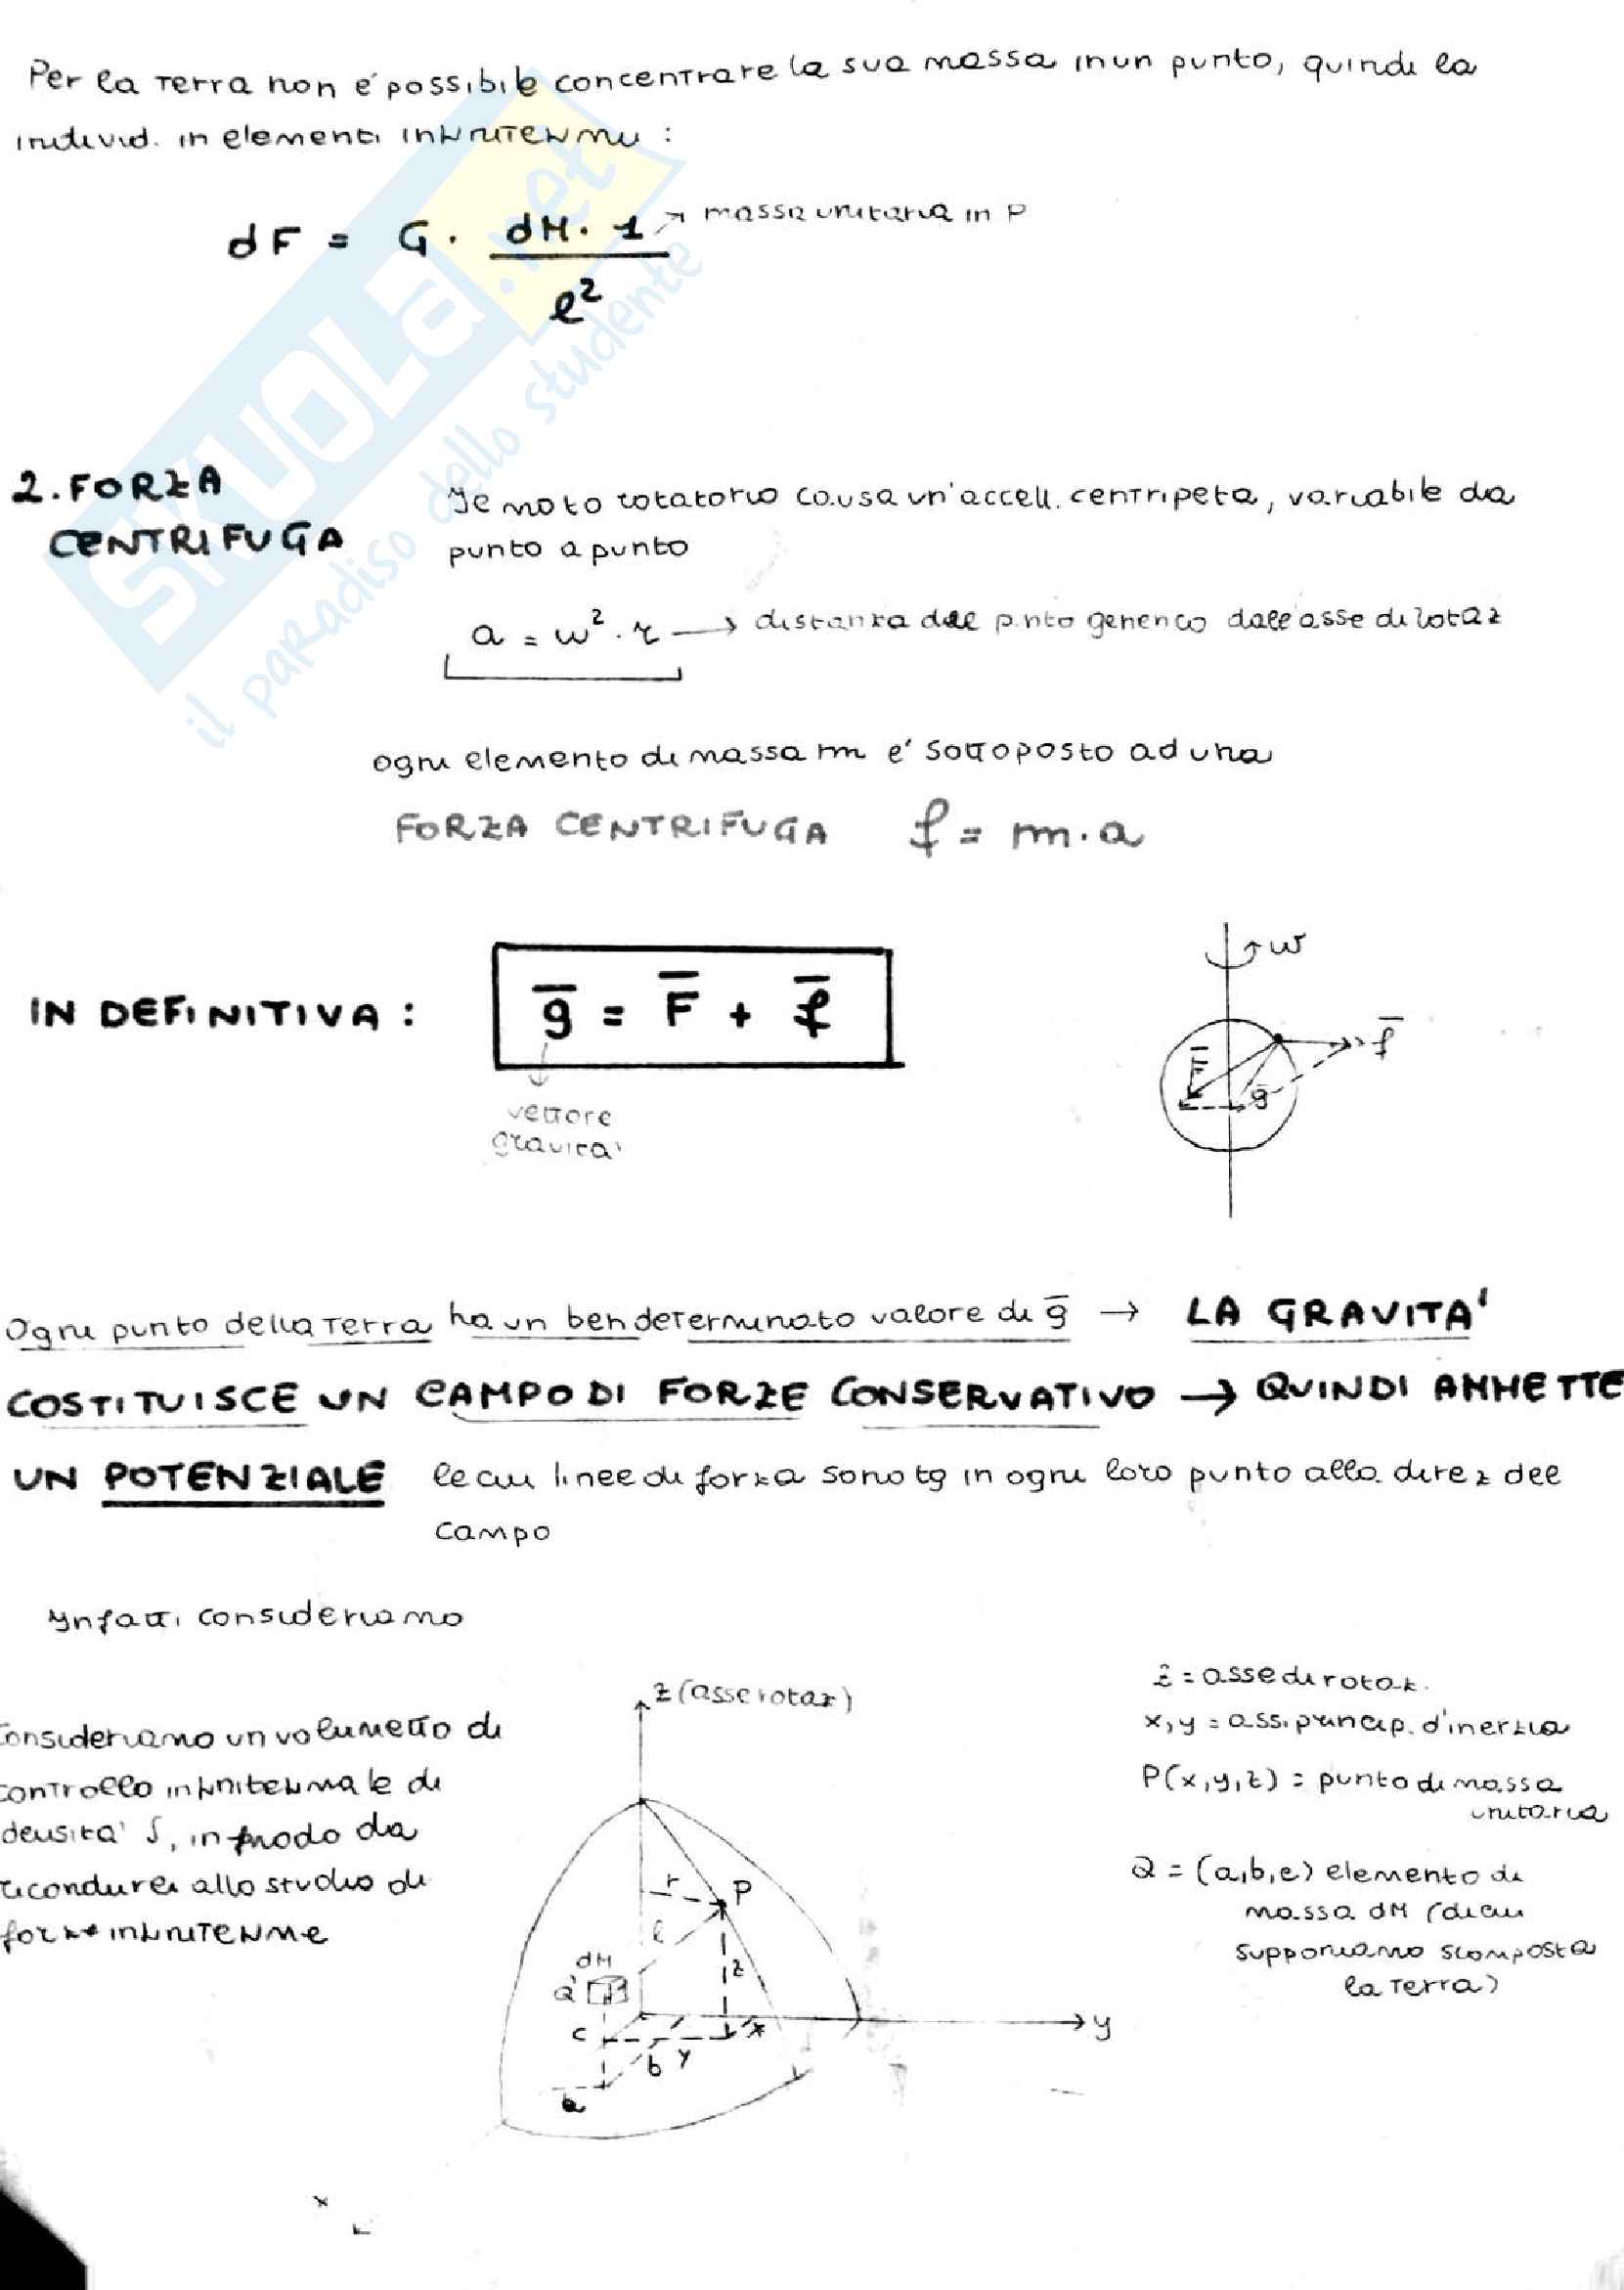 Per la Terra non é possibile concentrare la sua massa in un punto, quindi la
individ. in elementi infinitesimi :
dF = G · dM · 1 / l² ↗ massa unitaria in P
2. FORZA CENTRIFUGA
Il moto rotatorio causa un'accell. centripeta, variabile da
punto a punto
a = w² · r → distanza del p.nto generico dall'asse di rotaz
ogni elemento di massa m é sottoposto ad una
FORZA CENTRIFUGA f = m · a
IN DEFINITIVA : g = F + f
vettore
gravita'
w
f
F
g
Ogni punto della Terra ha un ben determinato valore di g → LA GRAVITA'
COSTITUISCE UN CAMPO DI FORZE CONSERVATIVO → QUINDI AMMETTE
UN POTENZIALE le cui linee di forza sono tg in ogni loro punto alla direz del
campo
Infatti consideriamo
Consideriamo un volumetto di
controllo infinitesimale di
densita' δ, in modo da
ricondurci allo studio di
forze infinitesime
z (asse rotaz)
r
P
l
dM
Q
z
c
x
y
b
y
a
x
z = asse di rotaz.
x, y = assi princip. d'inerzia
P(x, y, z) = punto di massa
unitaria
Q = (a, b, c) elemento di
massa dM (di cui
supponiamo scomposta
la Terra)
SKUOLA.net
il paradiso dello studente